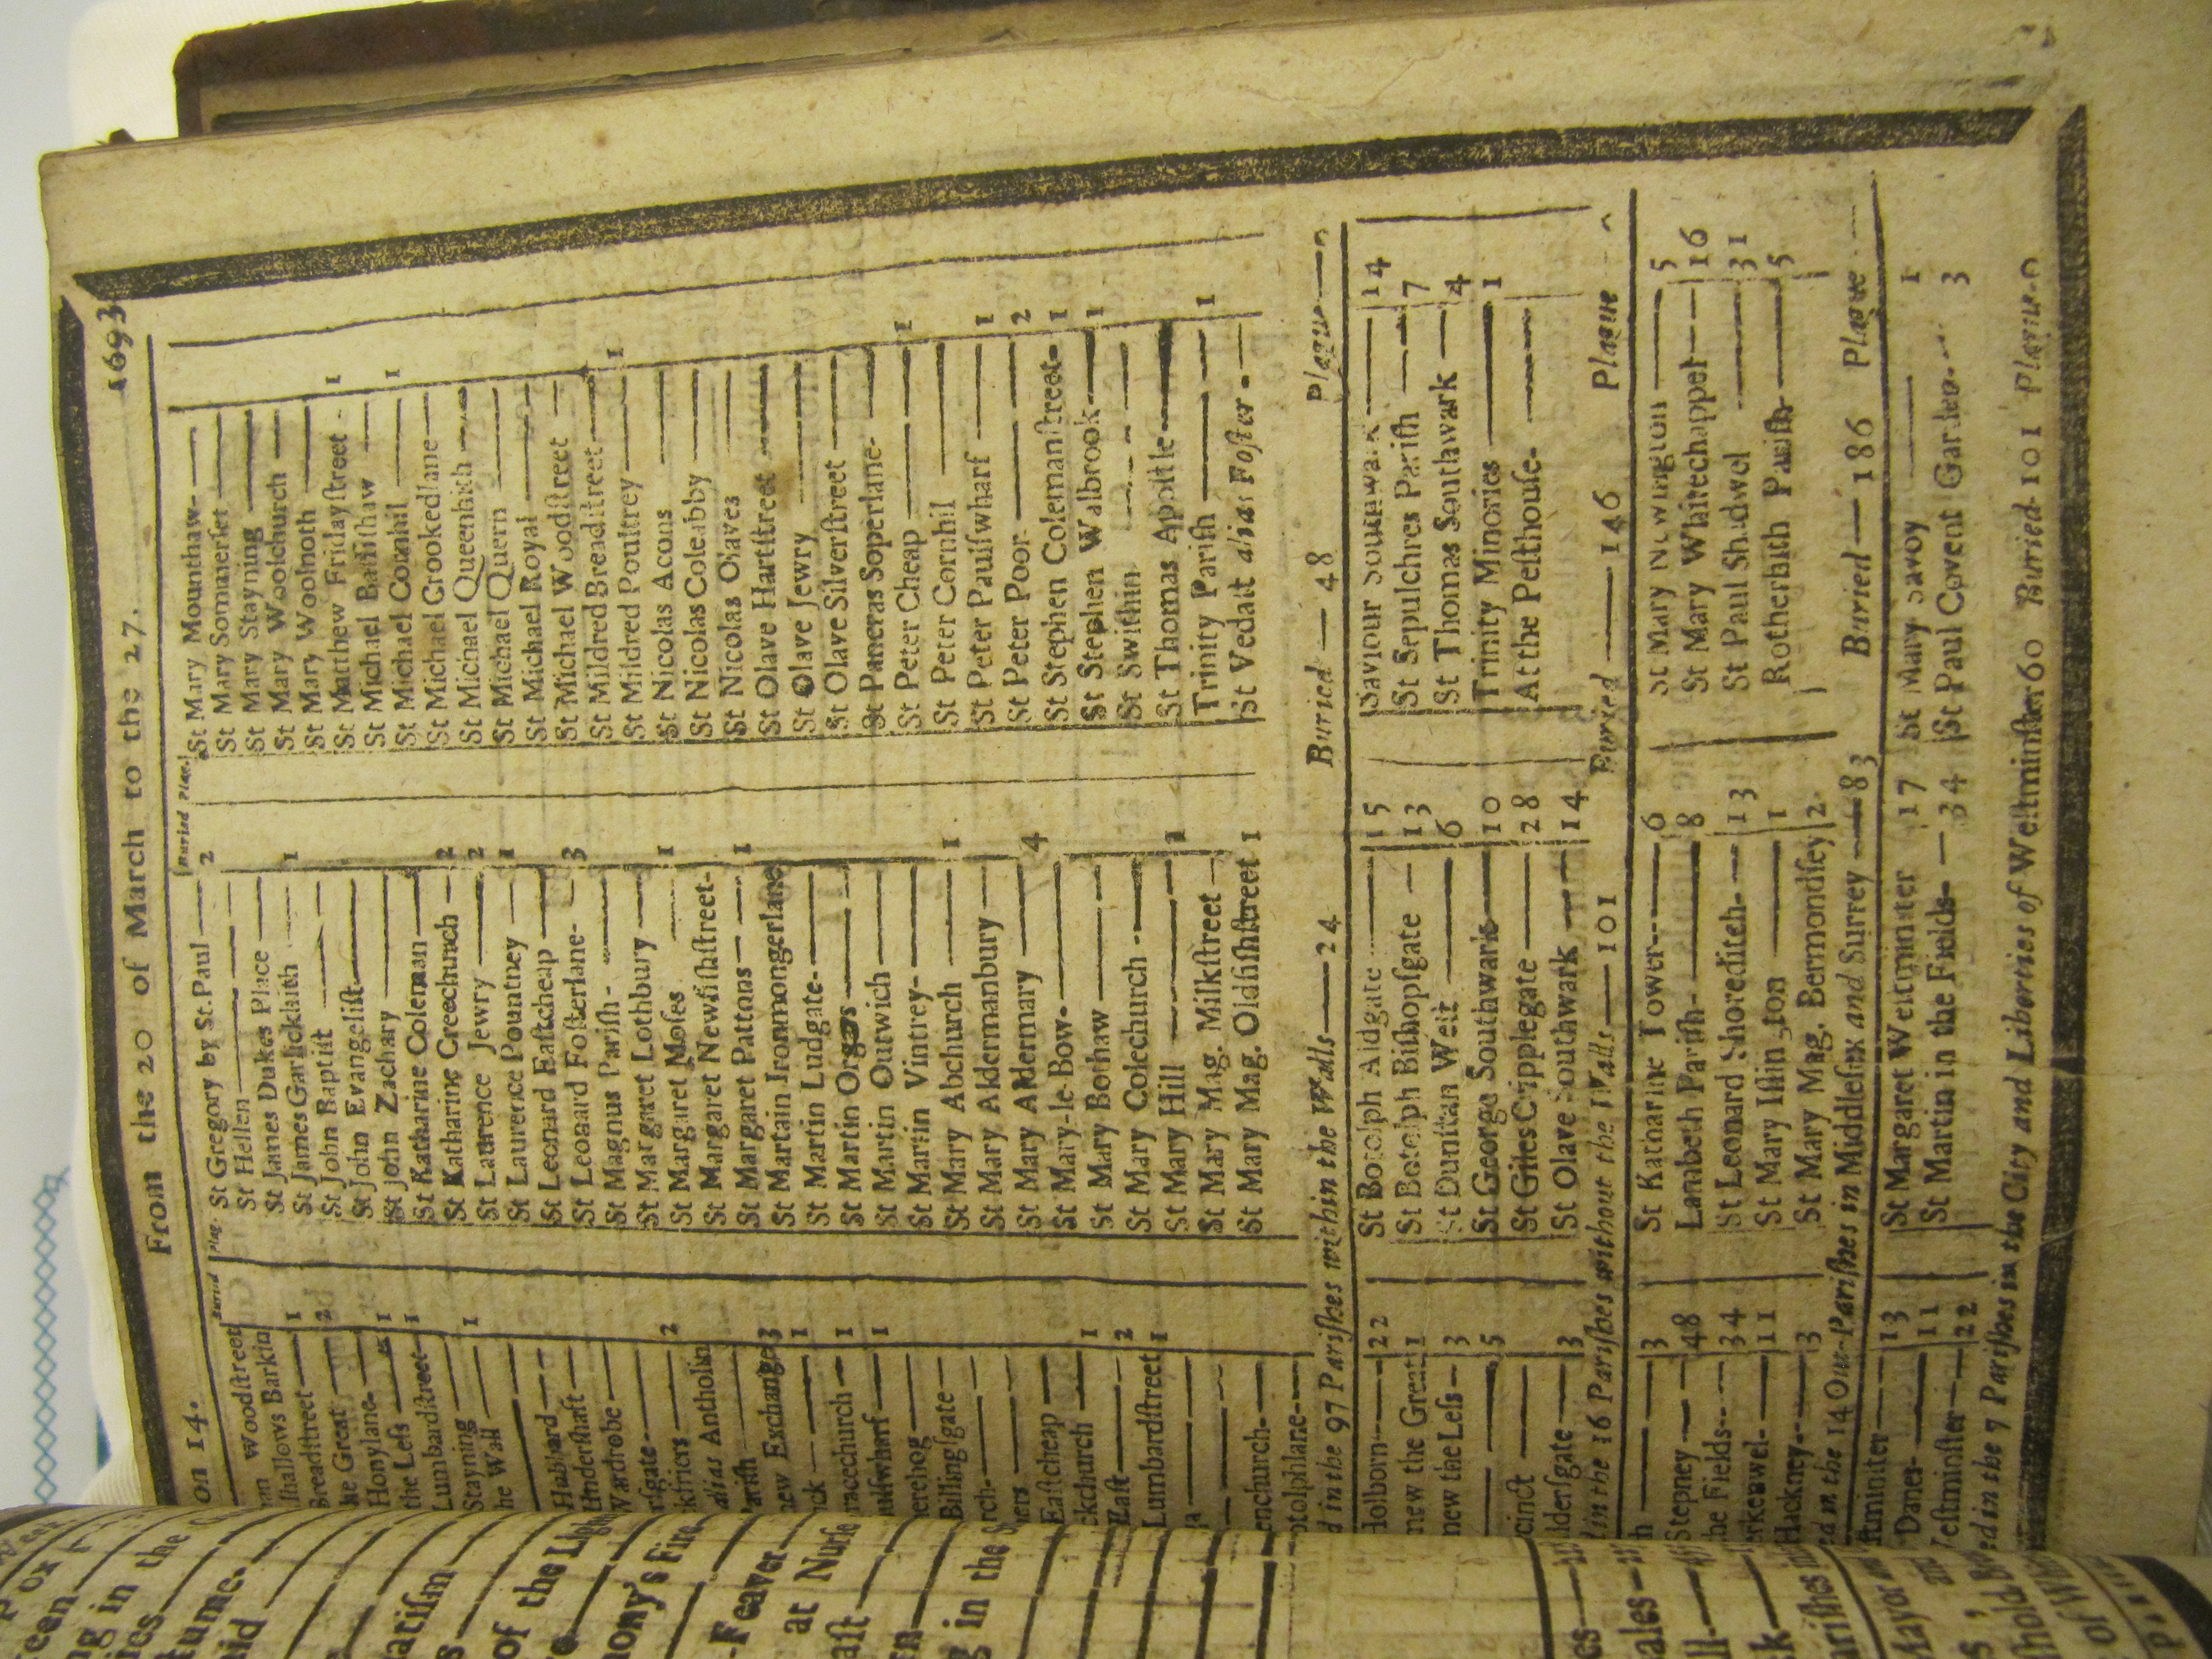 on 14. From the 20 of March to the 27. 1693
Buried Plag.
Buried Plag.
Woodſtreet
lhallows Barkin
Breadſtreet 1
he Great 2
Honylane 1
the Leſs 1
Lumbardſtreet
Stayning 1
he Wall
Hubbard
Underſhaft
Wardrobe
rſgate 2
ckfriers
alias Antholin
Pariſh
new Exchange 3
ck 1
racechurch 1
aulſwharf 1
nerehog
Billingſgate
rch
ners
Eaſtcheap 1
ckchurch
Eaſt 2
Lumbardſtreet 1
enchurch
otolphlane
St Gregory by St. Paul 2
St Hellen
St James Dukes Place
St James Garlickhith 1
St John Baptiſt
St John Evangeliſt
St John Zachary
St Katharine Coleman
St Katharine Creechurch 2
St Laurence Jewry 2
St Laurence Pountney 1
St Leonard Eaſtcheap
St Leonard Foſterlane 3
St Magnus Pariſh
St Margaret Lothbury
St Margaret Moſes 1
St Margaret Newfiſhſtreet
St Margaret Pattons 1
St Martain Ironmongerlane
St Martin Ludgate
St Martin Orgars
St Martin Outwich
St Martin Vintrey
St Mary Abchurch 1
St Mary Aldermanbury
St Mary Aldermary 4
St Mary-le-Bow
St Mary Bothaw
St Mary Colechurch
St Mary Hill
St Mary Mag. Milkſtreet
St Mary Mag. Oldfiſhſtreet 1
St Mary Mounthaw
St Mary Sommerſet
St Mary Stayning
St Mary Woolchurch
St Mary Woolnoth
St Matthew Fridayſtreet 1
St Michael Baſſiſhaw
St Michael Cornhil 1
St Michael Crookedlane
St Michael Queenhith
St Michael Quern
St Michael Royal
St Michael Woodſtreet
St Mildred Breadſtreet
St Mildred Poultrey 1
St Nicolas Acons
St Nicolas Coleabby
St Nicolas Olaves
St Olave Hartſtreet
St Olave Jewry
St Olave Silverſtreet
St Pancras Soperlane
St Peter Cheap 1
St Peter Cornhil
St Peter Paulſwharf 1
St Peter Poor 2
St Stephen Colemanſtreet 1
St Stephen Walbrook 1
St Swithin
St Thomas Apoſtle
Trinity Pariſh 1
St Vedaſt alias Foſter
d in the 97 Pariſhes within the Walls 24 Buried 48 Plague 0
Holborn 22
new the Great 1
new the Leſs 3
5
cinct
lderſgate 3
St Botolph Aldgate 15
St Botolph Biſhopſgate 13
St Dunſtan Weſt 6
St George Southwark 10
St Giles Cripplegate 28
St Olave Southwark 14
Saviour Southwark 14
St Sepulchres Pariſh 7
St Thomas Southwark 4
Trinity Minories 1
At the Peſthouſe
d in the 16 Pariſhes without the Walls 101 Buried 146 Plague
h 3
Stepney 48
he Fields 34
erkenwel 11
Hackney 3
St Katharine Tower 6
Lambeth Pariſh 8
St Leonard Shoreditch 13
St Mary Iſlington 1
St Mary Mag. Bermondſey 2
St Mary Newington 5
St Mary Whitechappel 16
St Paul Shadwel 31
Rotherhith Pariſh 5
ed in the 14 Out-Pariſhes in Middleſex and Surrey 83 Buried 186 Plague
ſtminſter 13
Danes 11
Veſtminſter 22
St Margaret Weſtminſter 17
St Martin in the Fields 34
St Mary Savoy 1
St Paul Covent Garden 3
ed in the 7 Pariſhes in the City and Liberties of Weſtminſter 60 Buried 101 Plague 0
een
ng in the
tume.
atiſm
of the Ligh
hony's Fire
-Feaver
at Nurſe
aſt
g in the S
ales
ariſhes in
Mayor
of Whe